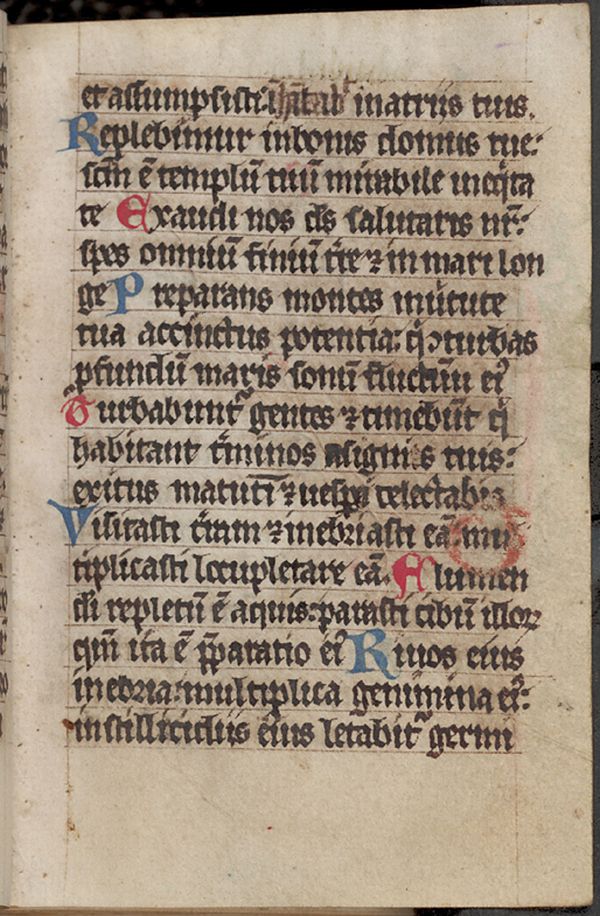 et assumpsisti: inhitab̄ in atriis tuis.
Replebimur in bonis domus tue:
scm̄ ē templū tuū mirabile in eq̄ta
te Exaudi nos ds̄ salutaris nr̄:
spes omniū finiū tr̄e ⁊ in mari lon
ge Preparans montes in ūtute
tua accinctus potentia: q̄ ↄturbas
ꝓfundū maris sonū fluctuū eiꝰ
Turbabuntᷣ gentes ⁊ timebūt q̄
habitant t̄minos a signis tuis:
exitus matuti ⁊ uesꝑe delectabis
Visitasti t̄ram ⁊ inebriasti eā: mu
tiplicasti locupletare eā. Flumen
di repletū ē aquis: parasti cibū illoꝝ
qm̄ ita ē p̄paratio eiꝰ Riuos eius
inebria: multiplica genimina eiꝰ:
in stillicidiis eius letabitᷣ germi